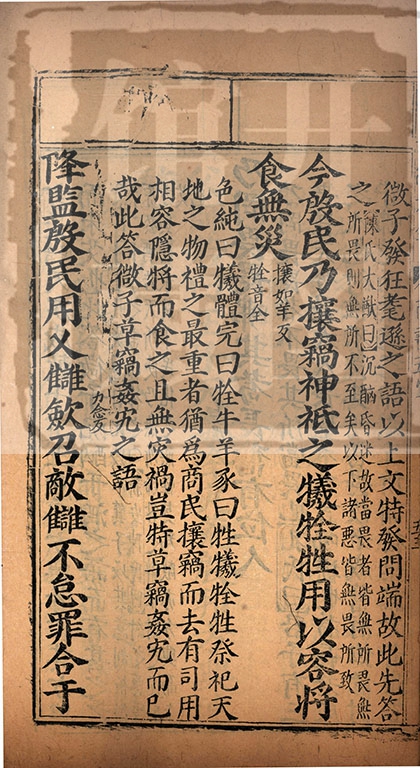 微子發狂耄遜之語以上文特發問端故此先答
之陳氏大猷曰沉酗昏迷故當畏者皆無所畏無
所畏則無所不至矣以下諸惡皆無畏所致
今殷民乃攘竊神祇之犧牷牲用以容將
食無災攘如羊反
牷音全
色純曰犧體完曰牷牛羊豕曰牲犧牷牲祭祀天
地之物禮之最重者猶爲商民攘竊而去有司用
相容隱將而食之且無灾禍豈特草竊姦宄而已
哉此答微子草竊姦宄之語
力念反
降監殷民用乂讎斂召敵讎不怠罪合于